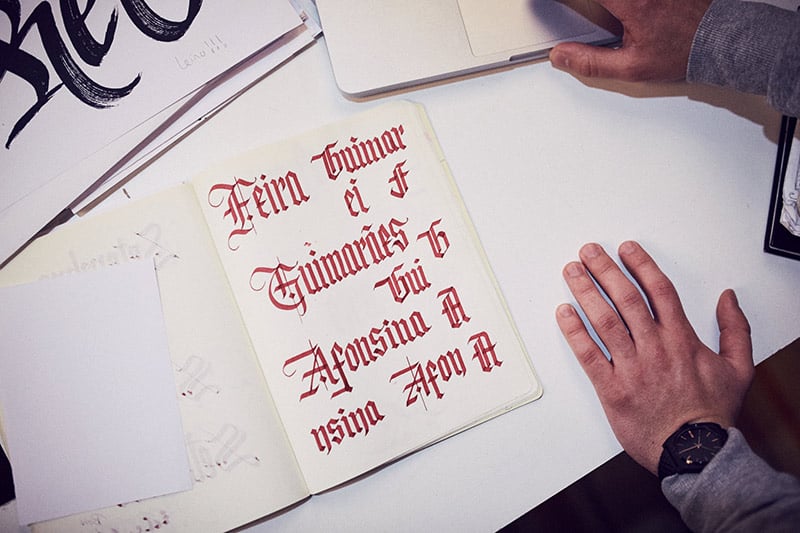 Rec
Leino!!!
Feira Guimar
ei F
Guimarães G
Gui
Afonsina A
Afon A
nsina